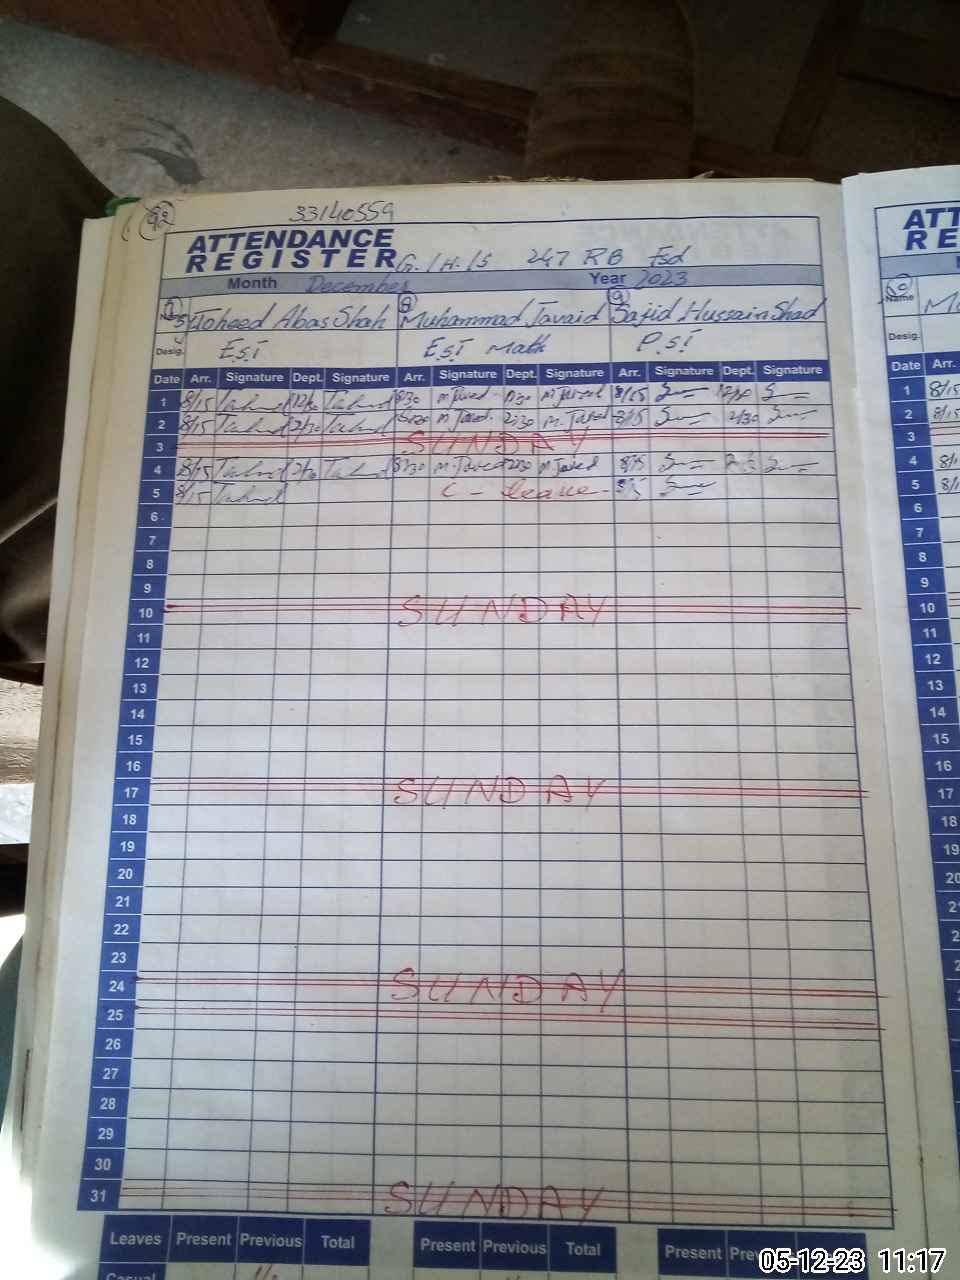 92
33140559
ATTENDANCE
REGISTER G.H.S 247 RB Fsd
Month December Year 2023
Name Toheed Abas Shah Muhammad Javaid Sajid Hussain Shad
Desig. E.S.T E.S.T Math P.S.T
Date Arr. Signature Dept. Signature Arr. Signature Dept. Signature Arr. Signature Dept. Signature
1 8/15 8/30 M. Javed M. Javed 8/15
2 8/15 2/30 M. Javed 2:30 M. Javed 8/15 2/30
3 SUNDAY
4 8/15 8/30 M. Javed 2:30 M. Javed 8/15
5 8/15 C - leave
6
7
8
9
10 SUNDAY
11
12
13
14
15
16
17 SUNDAY
18
19
20
21
22
23
24 SUNDAY
25
26
27
28
29
30
31 SUNDAY
Leaves Present Previous Total Present Previous Total Present
Casual
ATT
RE
Name
Desig.
Date Arr.
1 8/15
2 8/15
3
4
5
6
7
8
9
10
11
12
13
14
15
16
17
18
19
20
05-12-23 11:17